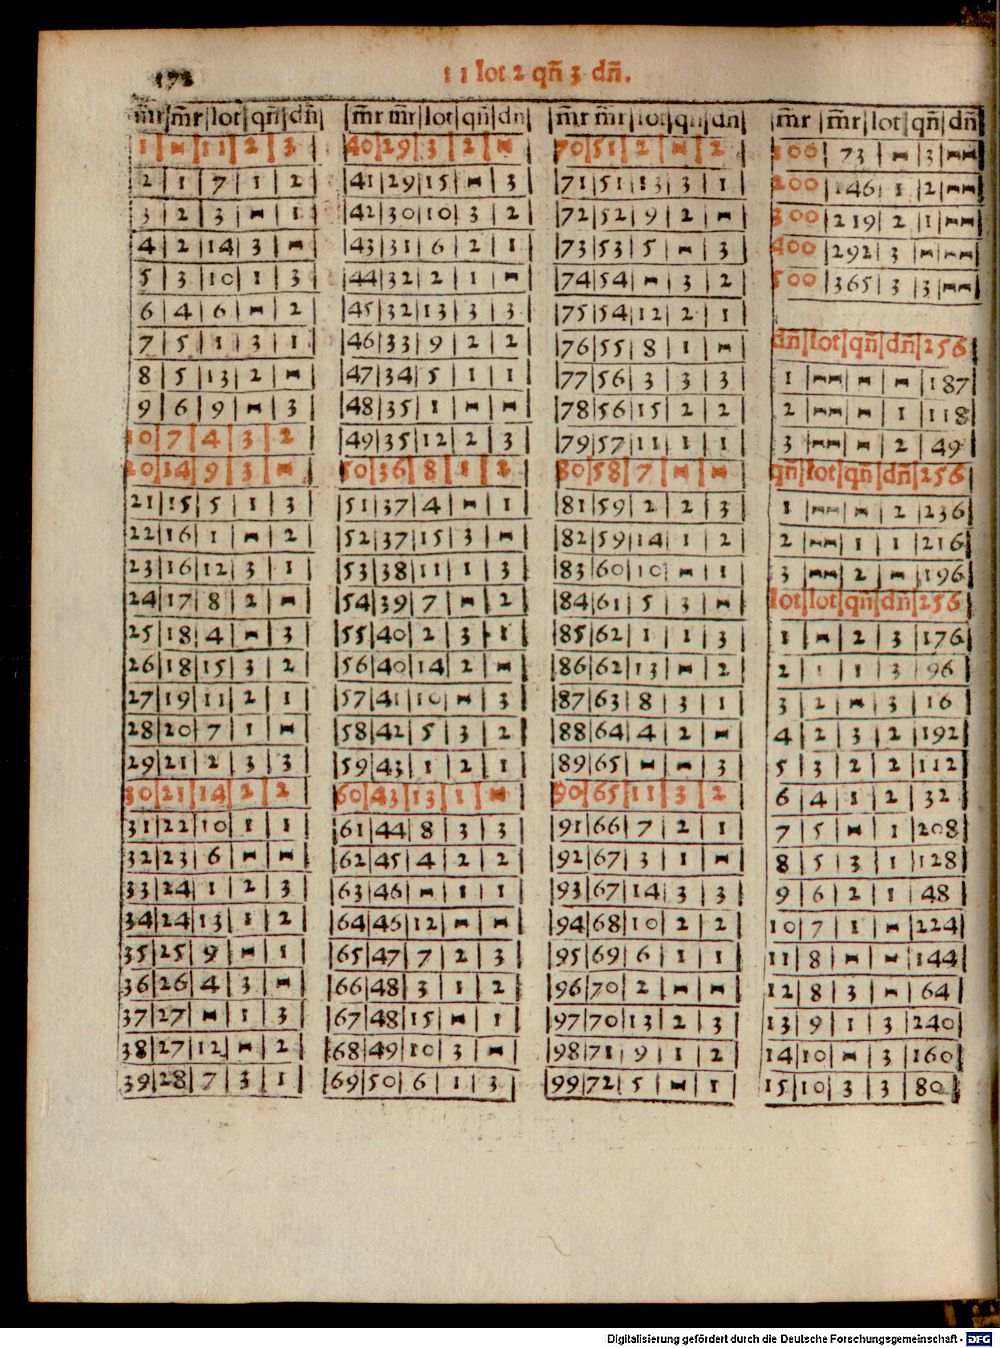 172
11 lot 2 qñ 3 dñ.
m̃r | m̃r | lot | qñ | dñ
1 | – | 11 | 2 | 3
2 | 1 | 7 | 1 | 2
3 | 2 | 3 | – | 1
4 | 2 | 14 | 3 | –
5 | 3 | 10 | 1 | 3
6 | 4 | 6 | – | 2
7 | 5 | 1 | 3 | 1
8 | 5 | 13 | 2 | –
9 | 6 | 9 | – | 3
10 | 7 | 4 | 3 | 2
20 | 14 | 9 | 3 | –
21 | 15 | 5 | 1 | 3
22 | 16 | 1 | – | 2
23 | 16 | 12 | 3 | 1
24 | 17 | 8 | 2 | –
25 | 18 | 4 | – | 3
26 | 18 | 15 | 3 | 2
27 | 19 | 11 | 2 | 1
28 | 20 | 7 | 1 | –
29 | 21 | 2 | 3 | 3
30 | 21 | 14 | 2 | 2
31 | 22 | 10 | 1 | 1
32 | 23 | 6 | – | –
33 | 24 | 1 | 2 | 3
34 | 24 | 13 | 1 | 2
35 | 25 | 9 | – | 1
36 | 26 | 4 | 3 | –
37 | 27 | – | 1 | 3
38 | 27 | 12 | – | 2
39 | 28 | 7 | 3 | 1
m̃r m̃r | lot | qñ | dñ
40 | 29 | 3 | 2 | –
41 | 29 | 15 | – | 3
42 | 30 | 10 | 3 | 2
43 | 31 | 6 | 2 | 1
44 | 32 | 2 | 1 | –
45 | 32 | 13 | 3 | 3
46 | 33 | 9 | 2 | 2
47 | 34 | 5 | 1 | 1
48 | 35 | 1 | – | –
49 | 35 | 12 | 2 | 3
50 | 36 | 8 | 1 | 2
51 | 37 | 4 | – | 1
52 | 37 | 15 | 3 | –
53 | 38 | 11 | 1 | 3
54 | 39 | 7 | – | 2
55 | 40 | 2 | 3 | 1
56 | 40 | 14 | 2 | –
57 | 41 | 10 | – | 3
58 | 42 | 5 | 3 | 2
59 | 43 | 1 | 2 | 1
60 | 43 | 13 | 1 | –
61 | 44 | 8 | 3 | 3
62 | 45 | 4 | 2 | 2
63 | 46 | – | 1 | 1
64 | 46 | 12 | – | –
65 | 47 | 7 | 2 | 3
66 | 48 | 3 | 1 | 2
67 | 48 | 15 | – | 1
68 | 49 | 10 | 3 | –
69 | 50 | 6 | 1 | 3
m̃r m̃r | lot | qñ | dñ
70 | 51 | 2 | – | 2
71 | 51 | 13 | 3 | 1
72 | 52 | 9 | 2 | –
73 | 53 | 5 | – | 3
74 | 54 | – | 3 | 2
75 | 54 | 12 | 2 | 1
76 | 55 | 8 | 1 | –
77 | 56 | 3 | 3 | 3
78 | 56 | 15 | 2 | 2
79 | 57 | 11 | 1 | 1
80 | 58 | 7 | – | –
81 | 59 | 2 | 2 | 3
82 | 59 | 14 | 1 | 2
83 | 60 | 10 | – | 1
84 | 61 | 5 | 3 | –
85 | 62 | 1 | 1 | 3
86 | 62 | 13 | – | 2
87 | 63 | 8 | 3 | 1
88 | 64 | 4 | 2 | –
89 | 65 | – | – | 3
90 | 65 | 11 | 3 | 2
91 | 66 | 7 | 2 | 1
92 | 67 | 3 | 1 | –
93 | 67 | 14 | 3 | 3
94 | 68 | 10 | 2 | 2
95 | 69 | 6 | 1 | 1
96 | 70 | 2 | – | –
97 | 70 | 13 | 2 | 3
98 | 71 | 9 | 1 | 2
99 | 72 | 5 | – | 1
m̃r | m̃r | lot | qñ | dñ
100 | 73 | – | 3 | –
200 | 146 | 1 | 2 | –
300 | 219 | 2 | 1 | –
400 | 292 | 3 | – | –
500 | 365 | 3 | 3 | –
dñ | lot | qñ | dñ | 256
1 | – | – | – | 187
2 | – | – | 1 | 118
3 | – | – | 2 | 49
qñ | lot | qñ | dñ | 256
1 | – | – | 2 | 236
2 | – | 1 | 1 | 216
3 | – | 2 | – | 196
lot | lot | qñ | dñ | 256
1 | – | 2 | 3 | 176
2 | 1 | 1 | 3 | 96
3 | 2 | – | 3 | 16
4 | 2 | 3 | 2 | 192
5 | 3 | 2 | 2 | 112
6 | 4 | 1 | 2 | 32
7 | 5 | – | 1 | 208
8 | 5 | 3 | 1 | 128
9 | 6 | 2 | 1 | 48
10 | 7 | 1 | – | 224
11 | 8 | – | – | 144
12 | 8 | 3 | – | 64
13 | 9 | 1 | 3 | 240
14 | 10 | – | 3 | 160
15 | 10 | 3 | 3 | 80
Digitalisierung gefördert durch die Deutsche Forschungsgemeinschaft - DFG